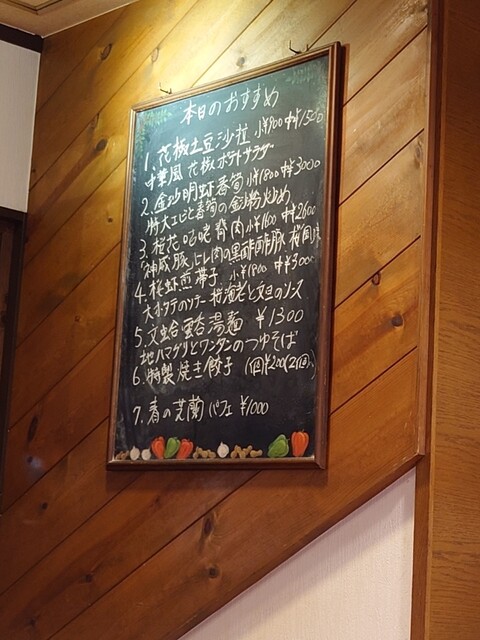 本日のおすすめ
1. 花椒土豆沙拉 小¥900 中¥1500
中華風 花椒ポテトサラダ
2. 金沙明虾春筍 小¥1800 中¥3000
特大エビと春筍の金沙粉炒め
3. 桜花咕咾脊肉 小¥1600 中¥2600
「神威豚」ヒレ肉の黒酢酢豚 桜風味
4. 桜虾煎帯子 小¥1800 中¥3000
大ホタテのソテー 桜海老と文旦のソース
5. 文蛤雲呑湯麺 ¥1300
地ハマグリとワンタンのつゆそば
6. 特製焼き餃子 1個¥200(2個〜)
7. 春の芝蘭パフェ ¥1000